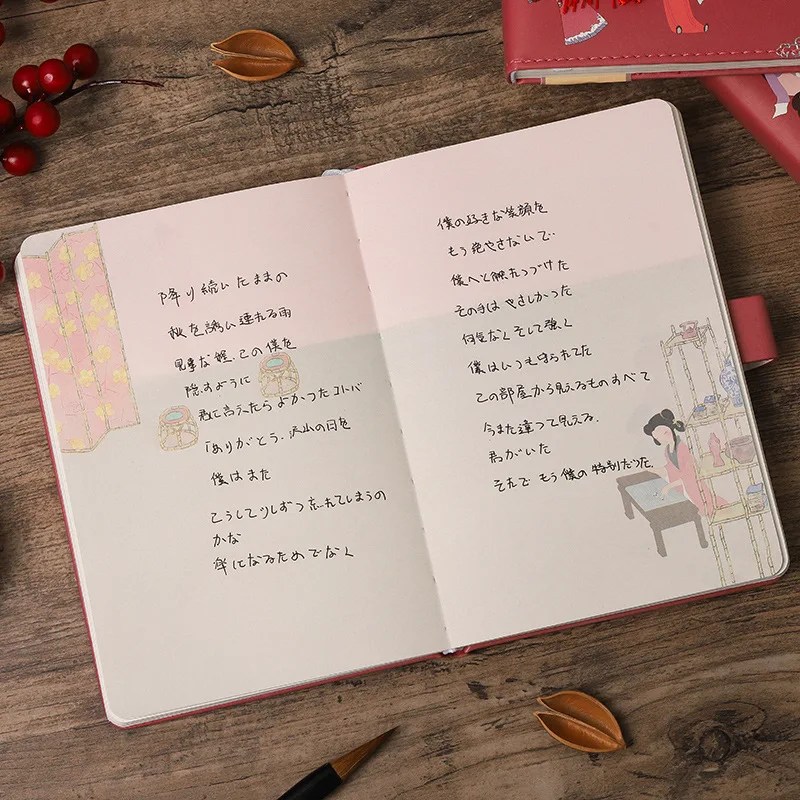 降り続いたままの
秋を誘い連れる雨
見事な程この僕を
隠すように
君に言えたらよかったコトバ
「ありがとう、沢山の日を
僕はまた
こうして少しずつ忘れてしまうの
かな
楽になるためでなく
僕の好きな笑顔を
もう絶やさないで…
僕へと触れつづけた
その手はやさしかった
何気なくそして強く
僕はいつも守られてた
この部屋から見えるものすべて
今また違って見える.
君がいた
それでもう僕の特別だった.